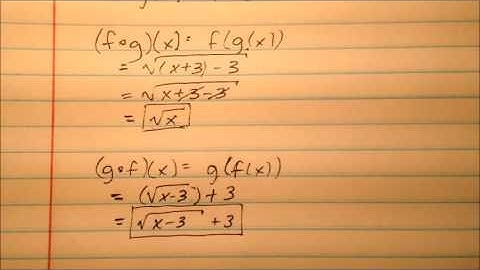 (f∘g)(x) = f(g(x))
= √(x+3) - 3
= √x+3-3
= √x
(g∘f)(x) = g(f(x))
= (√x-3) + 3
= √x-3 + 3